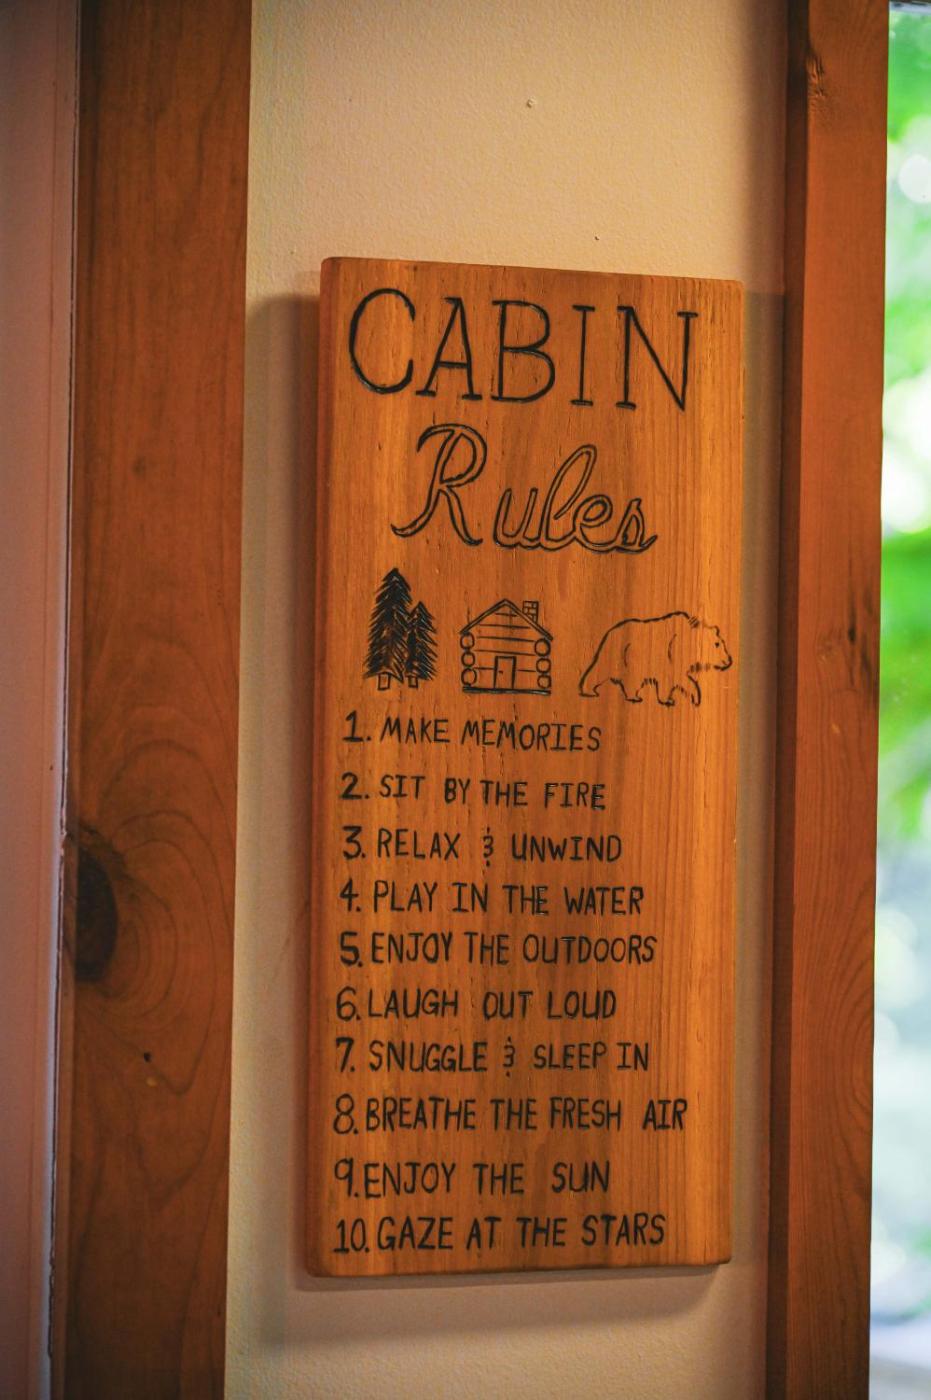 CABIN
Rules
1. MAKE MEMORIES
2. SIT BY THE FIRE
3. RELAX & UNWIND
4. PLAY IN THE WATER
5. ENJOY THE OUTDOORS
6. LAUGH OUT LOUD
7. SNUGGLE & SLEEP IN
8. BREATHE THE FRESH AIR
9. ENJOY THE SUN
10. GAZE AT THE STARS